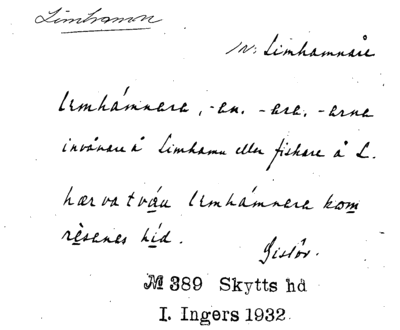 Limhamn
sv. Limhamnåre
lemhámnera, -an. -ara, -arna
invånare å Limhamn eller fiskare å L.
hær va tváu lemhámnera kom
rèsenes híd. Gislöv.
№ 389 Skytts hd
I. Ingers 1932